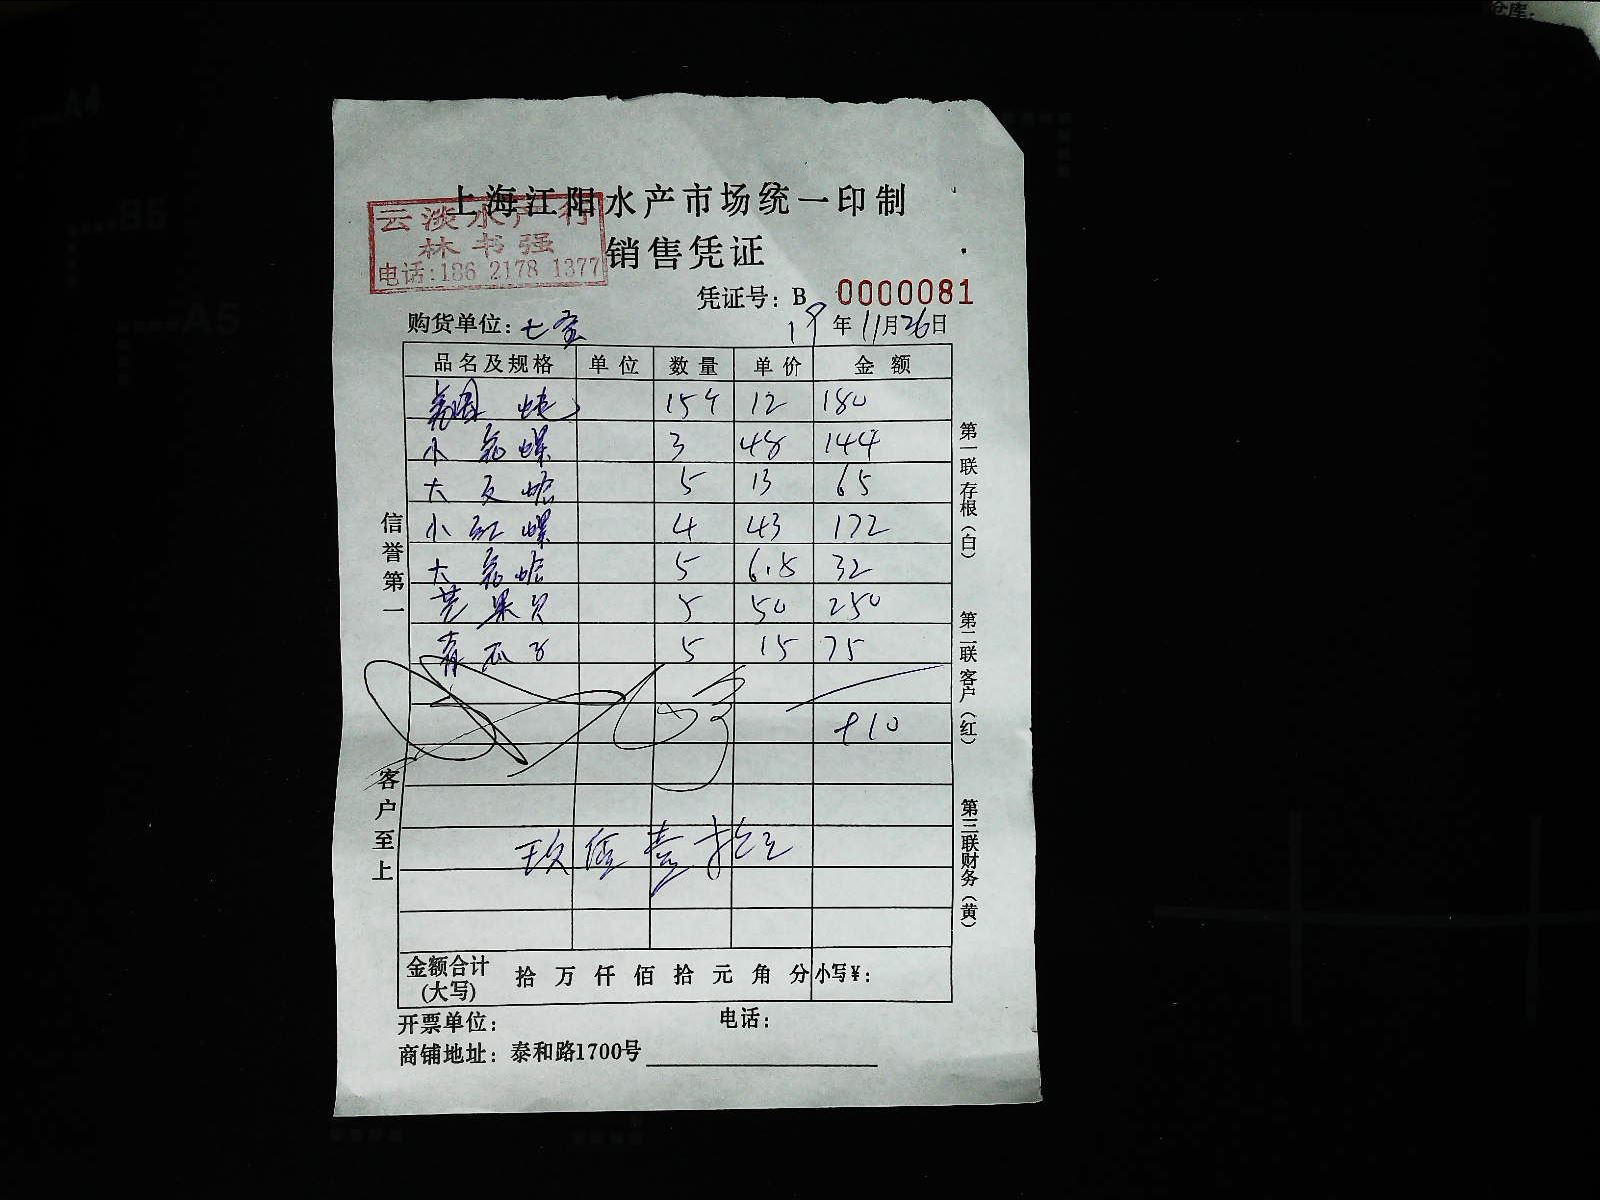 仓库:
A4
B5
A5
上海江阳水产市场统一印制
云淡水产行
林书强
电话:186 2178 1377
销售凭证
凭证号: B 0000081
购货单位: 七宝 19年11月26日
品名及规格 单位 数量 单价 金额
美国 154 12 180
小花螺 3 48 144
大 5 13 65
小红螺 4 43 172
大花蛤 5 6.5 32
芒果贝 5 50 250
青瓜子 5 15 75
910
玖佰壹拾元
金额合计(大写) 拾 万 仟 佰 拾 元 角 分 小写¥:
开票单位: 电话:
商铺地址: 泰和路1700号
信誉第一
客户至上
第一联 存根(白)
第二联 客户(红)
第三联 财务(黄)